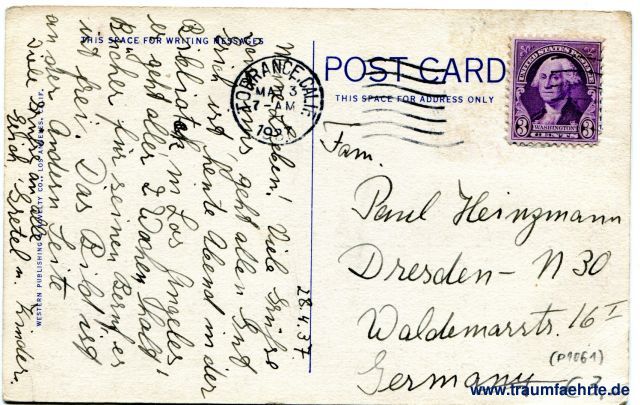 THIS SPACE FOR WRITING MESSAGES
Meine Lieben! Viele Grüße
von uns, geht allen gut
Erich ist heute Abend in der
Bibliothek in Los Angeles
er geht alle 2 Wochen, holt
Bücher für seinen Beruf, es
ist frei. Das Bild ist
an der andern Seite
Viele Grüße an alle
Erich, Gretel u. Kinder.
28.4.37
WESTERN PUBLISHING & NOVELTY CO., LOS ANGELES, CALIF.
TORRANCE, CALIF.
MAY 3
7-AM
1937
POST CARD
THIS SPACE FOR ADDRESS ONLY
UNITED STATES POSTAGE
WASHINGTON
3 CENTS 3
Fam.
Paul Heinzmann
Dresden - N 30
Waldemarstr. 16 I
(P1061)
Germany
www.traumfaehrte.de